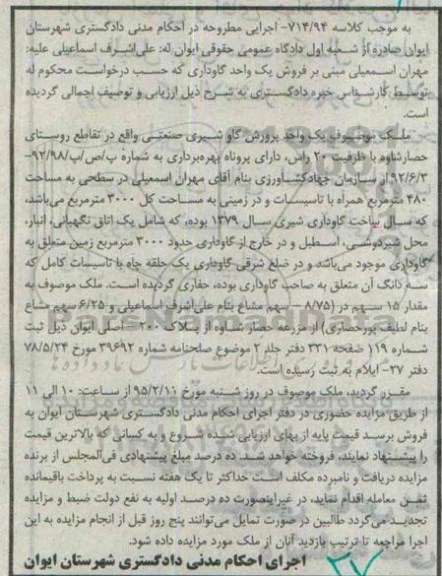 به موجب کلاسه ۷۱۴/۹۴- اجرایی مطروحه در احکام مدنی دادگستری شهرستان
ایوان صادره از شعبه اول دادگاه عمومی حقوقی ایوان له: علی‌اشرف اسماعیلی علیه:
مهران اسمعیلی مبنی بر فروش یک واحد گاوداری که حسب درخواست محکوم له
توسط کارشناس خبره دادگستری به شرح ذیل ارزیابی و توصیف اجمالی گردیده
است.
ملک موصوف یک واحد پرورش گاو شیری صنعتی واقع در تقاطع روستای
حصارشاوه با ظرفیت ۲۰ راس، دارای پروانه بهره‌برداری به شماره پ/ص/پ/۹۲/۹۸-
۹۲/۶/۳ از سازمان جهادکشاورزی بنام آقای مهران اسمعیلی در سطحی به مساحت
۴۸۰ مترمربع همراه با تاسیسات و در زمینی به مساحت کل ۳۰۰۰ مترمربع می‌باشد،
که سال ساخت گاوداری شیری سال ۱۳۷۹ بوده، که شامل یک اتاق نگهبانی، انبار،
محل شیردوشی، اسطبل و در خارج از گاوداری حدود ۳۰۰۰ مترمربع زمین متعلق به
گاوداری موجود می‌باشد و در ضلع شرقی گاوداری یک حلقه چاه با تاسیسات کامل که
سه دانگ آن متعلق به صاحب گاوداری بوده، حفاری گردیده است. ملک موصوف به
مقدار ۱۵ سهم در (۸/۷۵- سهم مشاع بنام علی‌اشرف اسماعیلی و ۶/۲۵ سهم مشاع
بنام لطیف پورحصاری) از مزرعه حصار شاوه از پلاک ۲۰۰- اصلی ایوان ذیل ثبت
شماره ۱۱۹ صفحه ۳۳۱ دفتر جلد ۲ موضوع صلحنامه شماره ۳۹۶۹۲ مورخ ۷۸/۵/۲۴
دفتر ۲۷- ایلام به ثبت رسیده است.
مقرر گردید، ملک موصوف در روز شنبه مورخ ۹۵/۲/۱۱ از ساعت: ۱۰ الی ۱۱
از طریق مزایده حضوری در دفتر اجرای احکام مدنی دادگستری شهرستان ایوان به
فروش برسد قیمت پایه از بهای ارزیابی شده شروع و به کسانی که بالاترین قیمت
را پیشنهاد نمایند، فروخته خواهد شد. ده درصد مبلغ پیشنهادی فی‌المجلس از برنده
مزایده دریافت و نامبرده مکلف است حداکثر تا یک هفته نسبت به پرداخت باقیمانده
ثمن معامله اقدام نماید، در غیراینصورت ده درصد اولیه به نفع دولت ضبط و مزایده
تجدید می‌گردد طالبین در صورت تمایل می‌توانند پنج روز قبل از انجام مزایده به این
اجرا مراجعه تا ترتیب بازدید آنان از ملک مورد مزایده داده شود.
اجرای احکام مدنی دادگستری شهرستان ایوان
۲۷